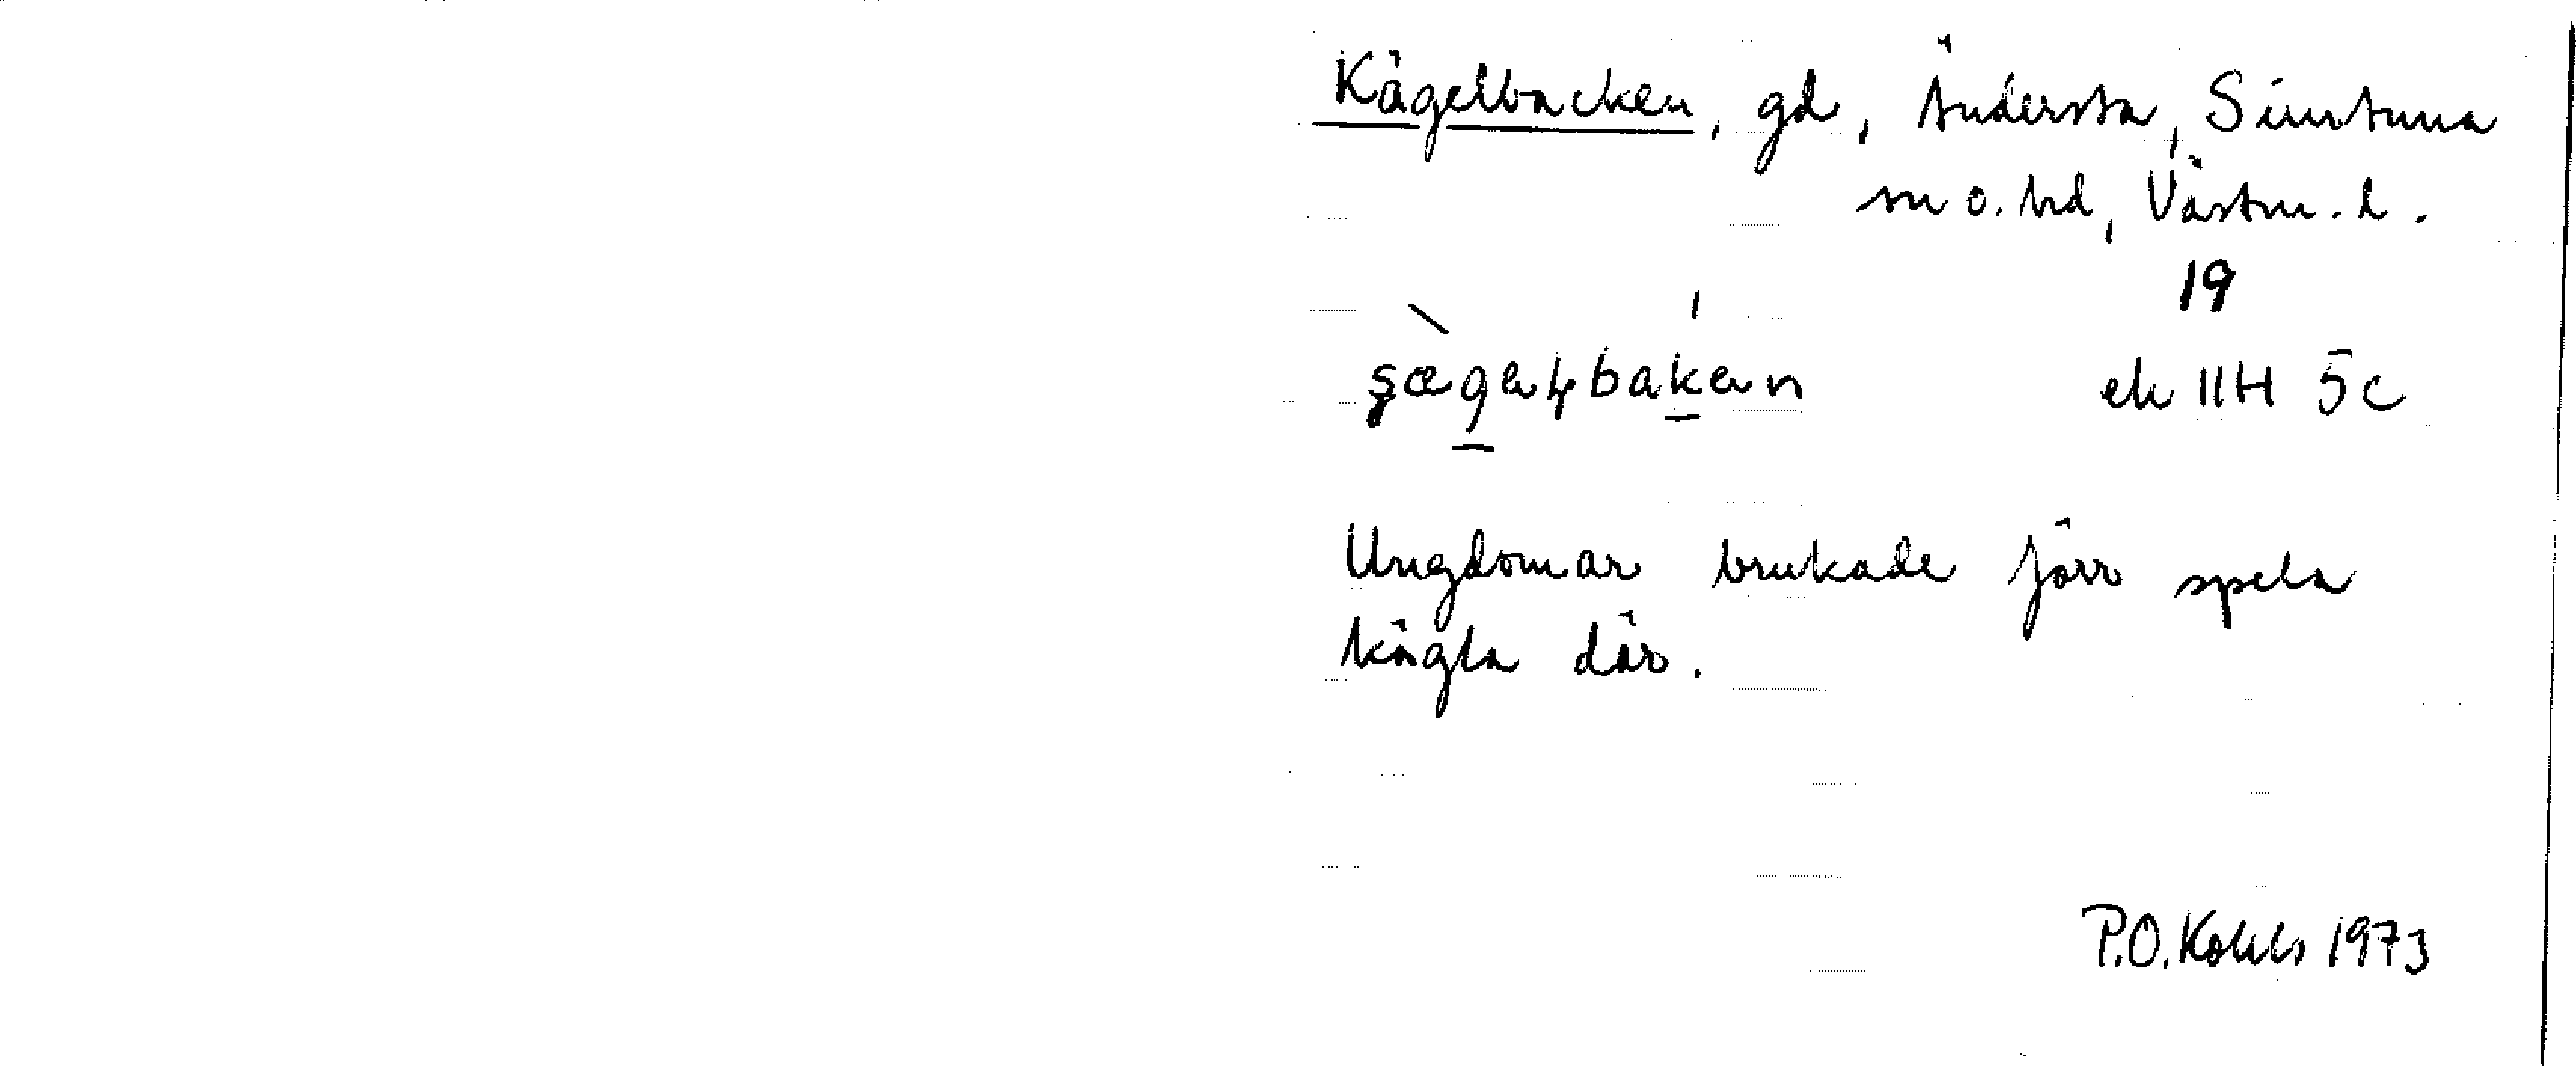 Kägelbacken, gd, Ändersta, Simtuna
sn o. hd, Västm. l.
19
ek 11H 5c
Ungdomar brukade förr spela
kägla där.
P.O. Kohls 1973